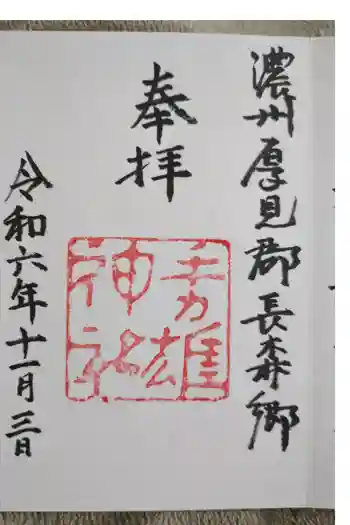 濃州厚見郡長森郷
奉拝
手力雄
神社
令和六年十一月三日